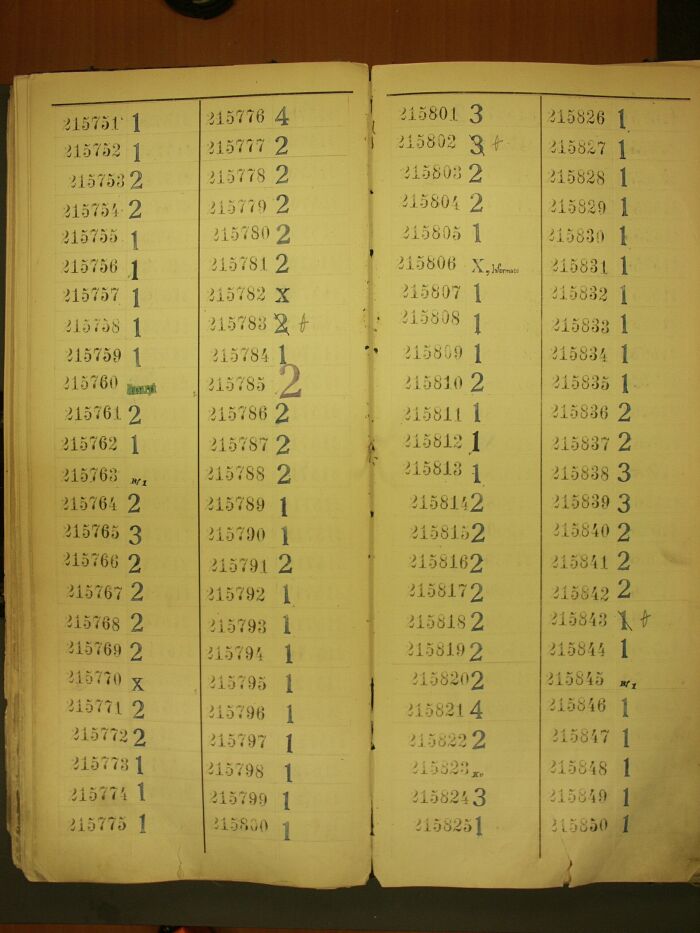 215751 1
215752 1
215753 2
215754 2
215755 1
215756 1
215757 1
215758 1
215759 1
215760
215761 2
215762 1
215763
215764 2
215765 3
215766 2
215767 2
215768 2
215769 2
215770 X
215771 2
215772 2
215773 1
215774 1
215775 1
215776 4
215777 2
215778 2
215779 2
215780 2
215781 2
215782 X
215783 2
215784 1
215785 2
215786 2
215787 2
215788 2
215789 1
215790 1
215791 2
215792 1
215793 1
215794 1
215795 1
215796 1
215797 1
215798 1
215799 1
215800 1
215801 3
215802 3
215803 2
215804 2
215805 1
215806 X
215807 1
215808 1
215809 1
215810 2
215811 1
215812 1
215813 1
215814 2
215815 2
215816 2
215817 2
215818 2
215819 2
215820 2
215821 4
215822 2
215823
215824 3
215825 1
215826 1
215827 1
215828 1
215829 1
215830 1
215831 1
215832 1
215833 1
215834 1
215835 1
215836 2
215837 2
215838 3
215839 3
215840 2
215841 2
215842 2
215843 1
215844 1
215845
215846 1
215847 1
215848 1
215849 1
215850 1